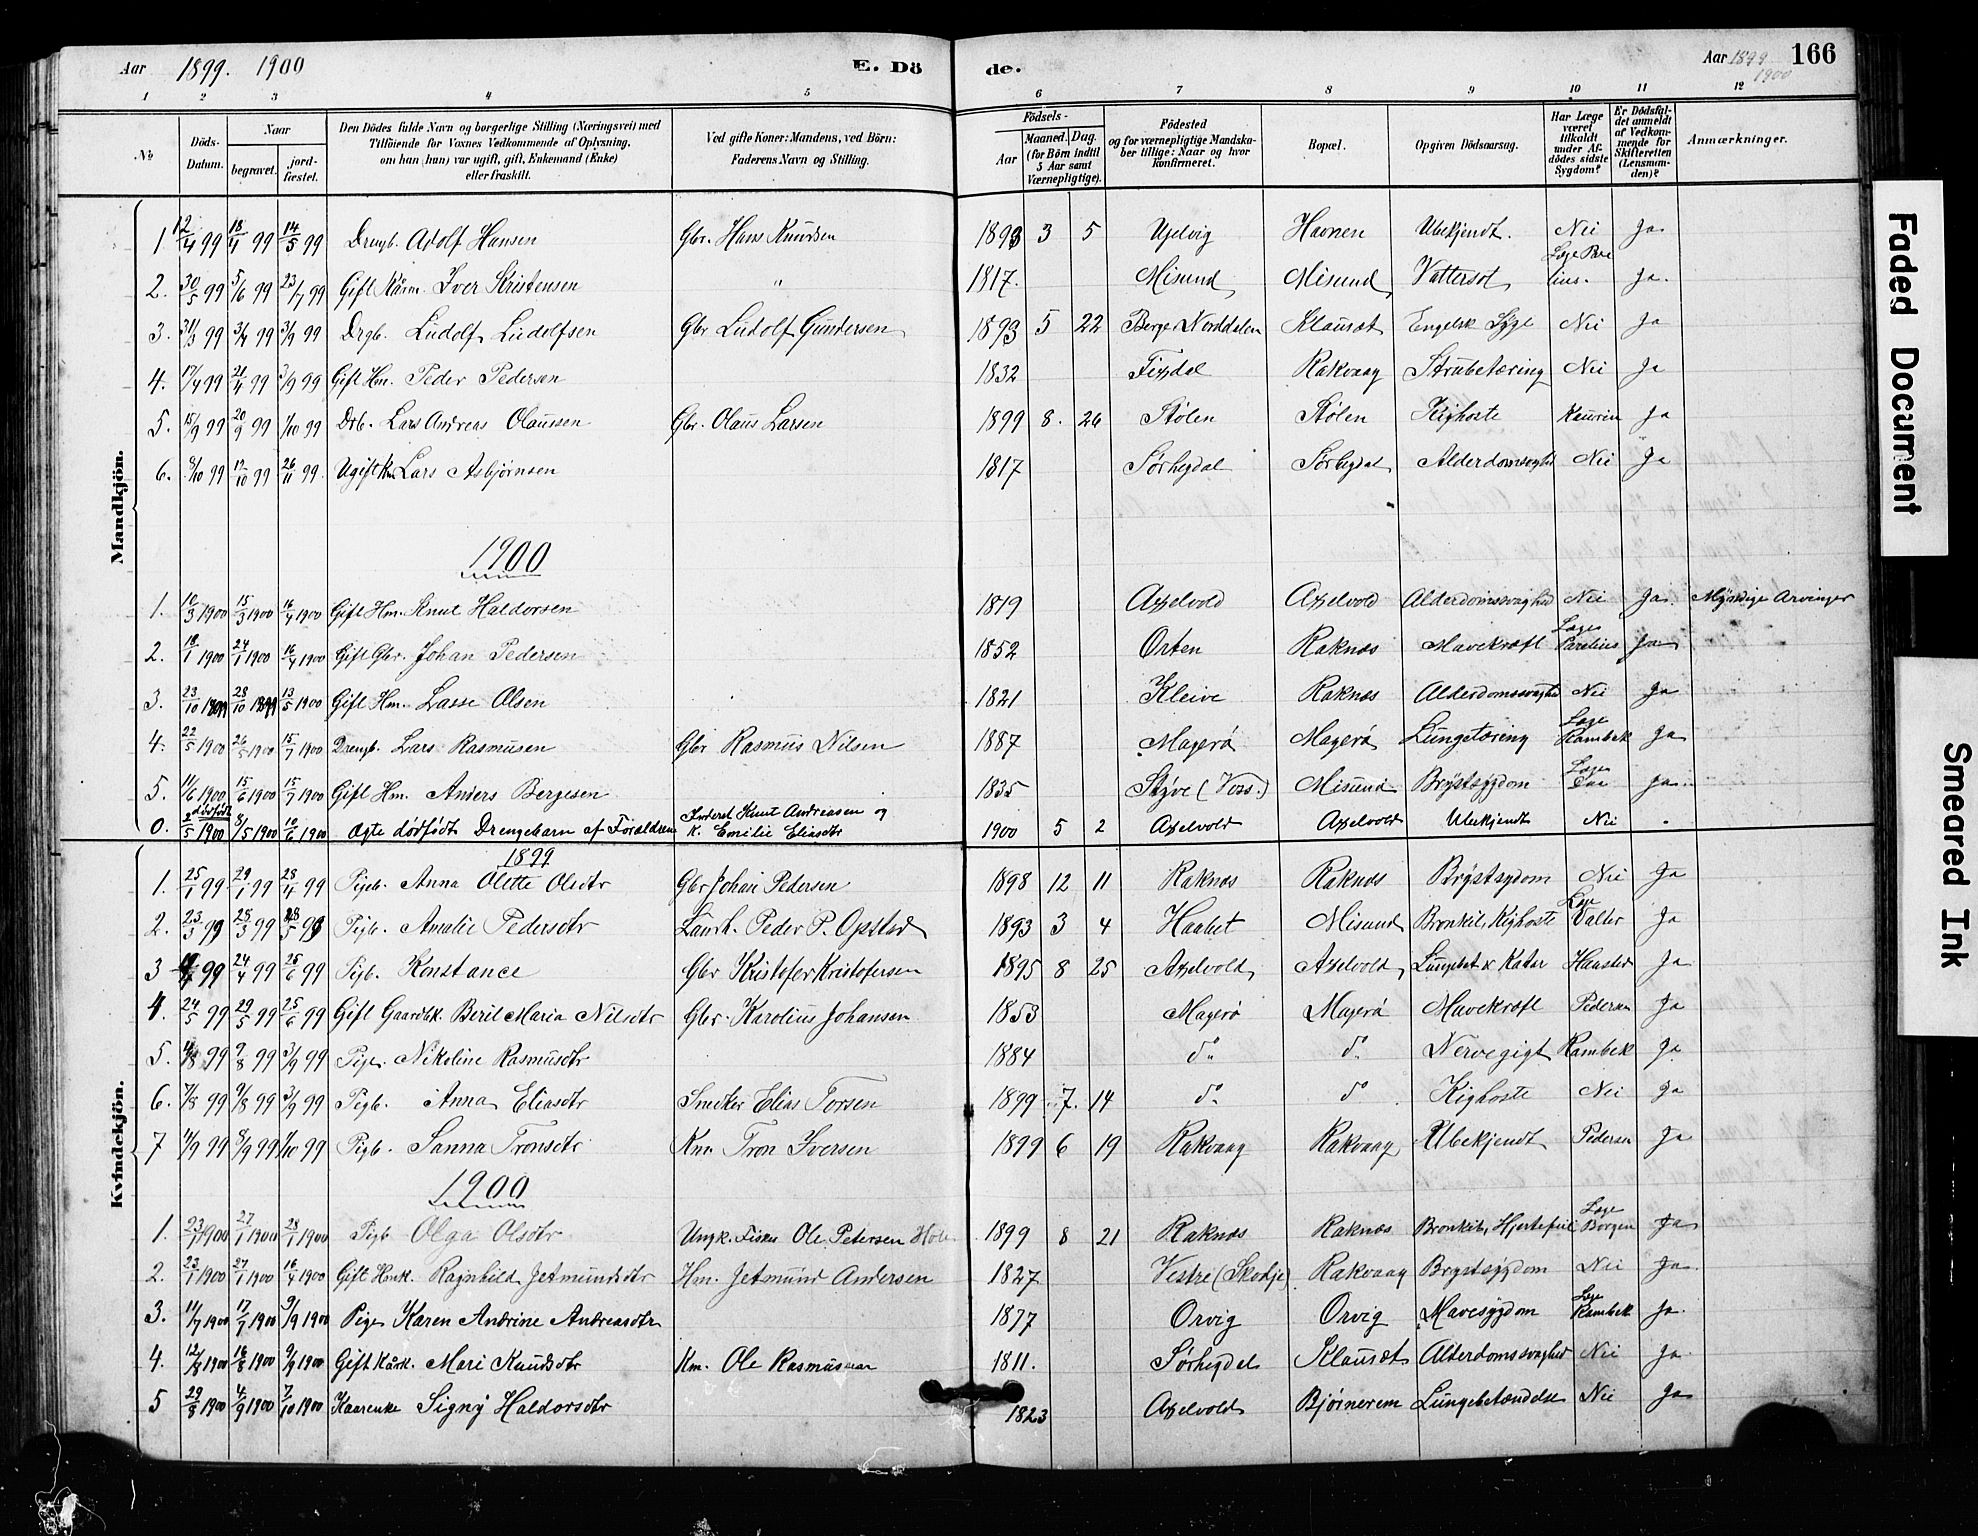 Aar 1899. 1900 E. Dö de. Aar 1899 1900 166
1 2 3 4 5 6 7 8 9 10 11 12
№ Döds-Datum. Naar begravet. jord-fæstet. Den Dödes fulde Navn og borgerlige Stilling (Næringsvei) med Tilföiende for Voxnes Vedkommende af Oplysning, om han (hun) var ugift, gift, Enkemand (Enke) eller fraskilt. Ved gifte Koner: Mandens, ved Börn: Faderens Navn og Stilling. Födsels- Aar Maaned. Dag. (for Börn indtil 5 Aar samt Værnepligtige). Födested og for værnepligtige Mandska-ber tillige: Naar og hvor konfirmeret. Bopæl. Opgiven Dödsaarsag. Har Læge været tilkaldt under Af-dödes sidste Sygdom? Er Dödsfal-det anmeldt af Vedkom-mende for Skifteretten (Lensman-den)? Anmærkninger.
Mandkjön.
1 12/4 99 18/4 99 14/5 99 Drengb. Adolf Hansen Gbr. Hans Knudsen 1893 3 5 Ujelvig Havnen Ubekjendt. Nei Ja
2. 30/5 99 5/6 99 23/7 99 Gift Kårm. Iver Kristensen " 1817. Misund Misund Vattersot Læge Ja.
3. 31/3 99 3/4 99 3/9 99 Drgb. Ludolf Ludolfsen Gbr Ludolf Gundersen 1893 5 22 Berge Norddalen Klauset Engelsk Syge Nei Ja
4. 17/4 99 21/4 99 3/9 99 Gift Hm. Peder Pedersen 1832 Fixdal Rakvaag Strubetæring Nei Ja
5. 15/9 99 20/9 99 1/10 99 Drb. Lars Andreas Olaussen Gbr. Olaus Larsen 1899 8. 26 Stølen Stølen Kighoste Kaurin Ja
6. 8/10 99 17/10 99 26/11 99 Ugift Lars Asbjørnsen 1817 Sørhegdal Sørhegdal Alderdomsvaghd Nei Ja
1900
1. 10/3 1900 15/3 1900 16/4 1900 Gift Hm. Knut Haldorsen 1819 Axelvold Axelvold Alderdomssvaghed Nei Ja. Myndige Arvinger
2. 18/1 1900 24/1 1900 16/4 1900 Gift Gbr. Johan Pedersen 1852 Orten Raknæs Mavekræft Læge Parelius Ja
3. 23/10 1899 28/10 1899 13/5 1900 Gift Hm. Lasse Olsen 1821 Kleive Raknæs Alderdomssvaghd Nei Ja
4. 22/5 1900 26/5 1900 15/7 1900 Drengb. Lars Rasmusen Gbr Rasmus Nilsen 1887 Magerö Magerö Lungetæring Læge Rambek Ja
5. 11/6 1900 15/6 1900 15/7 1900 Gift Hm. Anders Bergesen 1835 Styve (Voss.) Misund Brystsygdom Læge Ja.
0. dødfødt 2/5 1900 8/5 1900 10/6 1900 Ægte dödfödt Drengebarn af Forældrene Inderst Knut Andreasen og K. Emilie Eliasdtr 1900 5 2 Axelvold Axelvold Ubekjendt Nei
Kvindekjön.
1899
1. 25/1 99 29/1 99 23/4 99 Pigeb. Anna Olette Olsdtr Gbr Johan Pedersen 1898 12 11 Raknæs Raknæs Brystsydom Nei Ja
2. 23/3 99 25/3 99 28/5 99 Pigb. Amalie Pedersdtr Landh. Peder P. Opstad 1893 3 4 Haabet Misund Bronkit, Kighoste Læge Valter Ja
3 99 24/4 99 25/6 99 Pigb. Konstance Gbr Kristofer Kristofersen 1895 8 25 Axelvold Axelvold Lungebet & Katar Hansted Ja
4. 24/5 99 29/5 99 25/6 99 Gift Gaardbk. Beril Maria Nilsdtr Gbr. Karolius Johansen 1853 Magerö Magerö Mavekræft Pedersen Ja
5. 4/8 99 9/8 99 3/9 99 Pige. Nikoline Rasmusdtr 1884 do do Nervegigt Rambek Ja
6. 7/8 99 9/8 99 3/9 99 Pigb. Anna Eliasdtr Snedker Elias Torsen 1899 7. 14 do do Kighoste Nei Ja
7 4/9 99 8/9 99 1/10 99 Pigb. Sanna Tronsdtr Tron Iversen 1899 6 19 Rakvaag Rakvaag Ubekjendt Pedersen Ja
1900
1. 23/1 1900 27/1 1900 28/1 1900 Pigb Olga Olsdtr Ungk. Fisker Ole Petersen 1899 8 21 Raknæs Raknæs Bronkit, Hjertefeil Læge Borgen Ja
2. 23/1 1900 27/1 1900 16/4 1900 Gift Hmk. Ragnhild Jetmundsdtr Hm. Jetmund Andersen 1827 Vestre (Skodje) Rakvaag Brystsygdom Nei Ja.
3. 11/7 1900 17/7 1900 9/9 1900 Pige Karen Andrine Andreasdtr 1877 Orvig Orvig Mavesygdom Læge Rambek Ja.
4. 12/8 1900 16/8 1900 9/9 1900 Gift Kårk. Mari Knudsdtr Km. Ole Rasmussen 1811. Sørhegdal Klauset Alderdomssvaghed Nei Ja.
5 29/8 1900 4/9 1900 7/10 1900 Kaarenke Signy Haldorsdtr 1823 Axelvold Bjørnerem Lungebetændelse Nei Ja
Faded Document
Smeared Ink